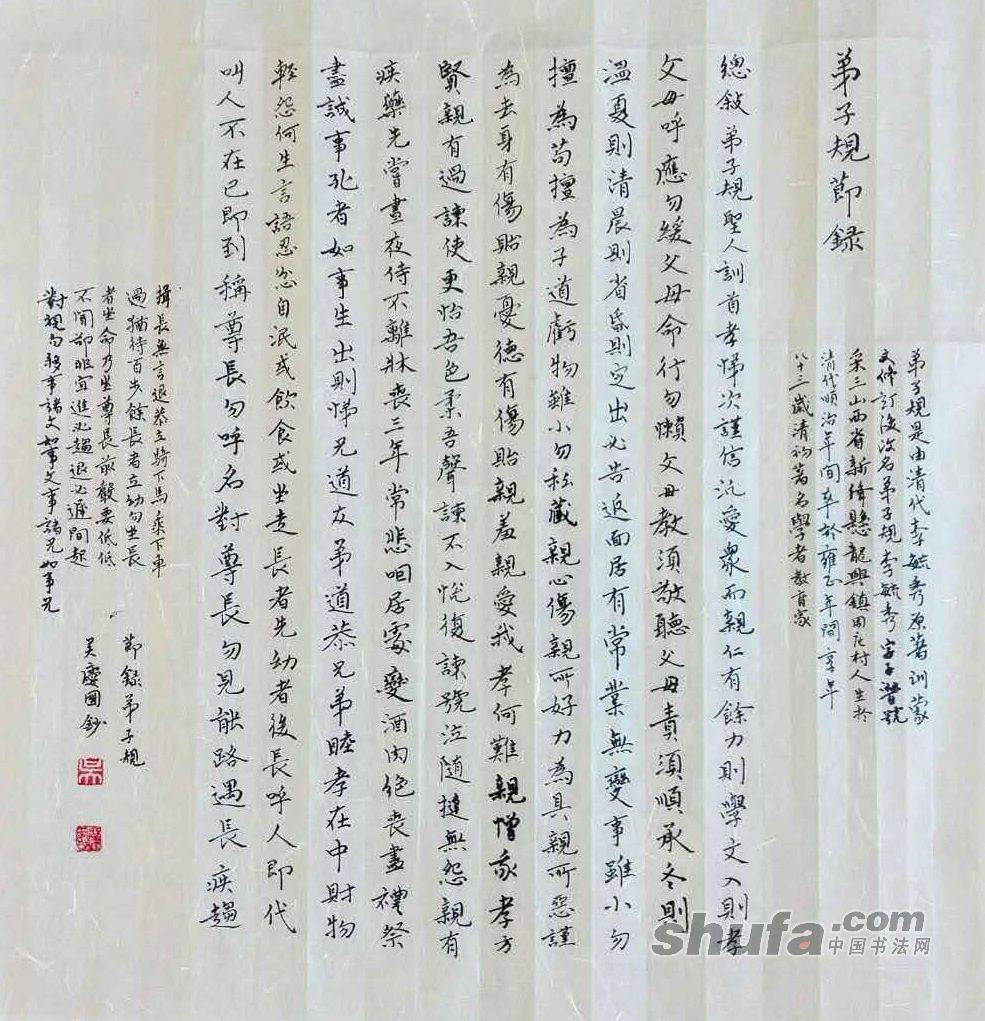 弟子規節錄
弟子規是由清代李毓秀原著訓蒙
文修訂後改名弟子規李毓秀字子潛號
采三山西省新絳縣龍興鎮周庄村人生於
清代順治年間卒於雍正年間享年
八十三歲清初著名學者教育家
總敍弟子規聖人訓首孝悌次謹信汎愛眾而親仁有餘力則學文入則孝
父母呼應勿緩父母命行勿懶父母教須敬聽父母責須順承冬則
溫夏則清晨則省昏則定出必告返面居有常業無變事雖小勿
擅為苟擅為子道虧物雖小勿私藏親心傷親所好力為具親所惡謹
為去身有傷貽親憂德有傷貽親羞親愛我孝何難親憎我孝方
賢親有過諫使更怡吾色柔吾聲諫不入悅復諫號泣隨撻無怨親有
疾藥先嘗晝夜侍不離牀喪三年常悲咽居處變酒肉絕喪盡禮祭
盡誠事死者如事生出則悌兄道友弟道恭兄弟睦孝在中財物
輕怨何生言語忍忿自泯或飲食或坐走長者先幼者後長呼人即代
叫人不在己即到稱尊長勿呼名對尊長勿見能路遇長疾趨
揖長無言退恭立騎下馬乘下車
過猶待百步餘長者立幼勿坐長
者坐命乃坐尊長前聲要低低
不聞卻非宜進必趨退必遲問起
對視勿移事諸父如事父事諸兄如事兄
節錄弟子規
吳慶國鈔
吳
shufa.com
中国书法网